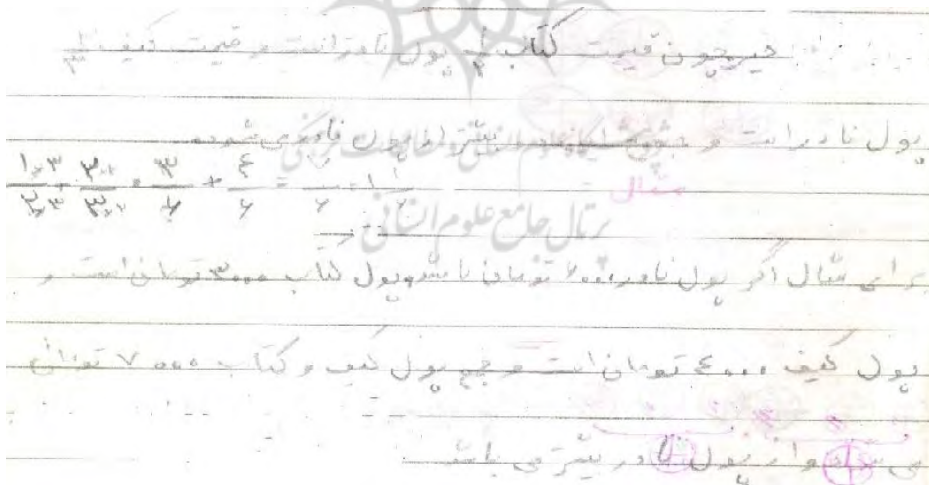 خیر چون قیمت کتاب ۱/۲ پول نادر است و قیمت کیف ۲/۳
پول نادر است و بیشتر از پول نادر می شود.
مثال
۱×۳/۲×۳ + ۲×۲/۳×۲ = ۳/۶ + ۴/۶ = ۷/۶ = ۱ ۱/۶
پرتال جامع علوم انسانی
برای مثال اگر پول نادر ۶۰۰۰ تومان باشد پول کتاب ۳۰۰۰ تومان است و
پول کیف ۴۰۰۰ تومان است و جمع پول کیف و کتاب ۷۰۰۰ تومان
می شود و از پول نادر بیشتر می باشد.